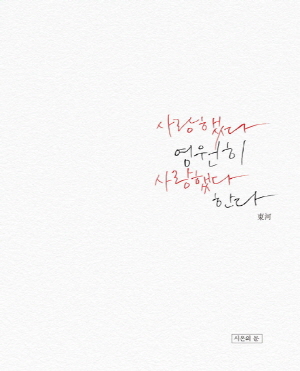 사랑했다
영원히
사랑했다
한다
東河
시온의 문